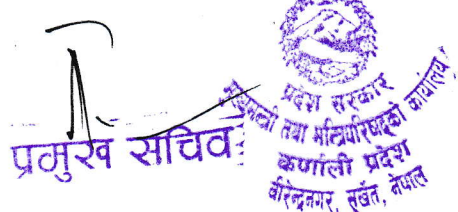 प्रमुख सचिव
प्रदेश सरकार
मुख्यमन्त्री तथा मन्त्रिपरिषद्को कार्यालय
कर्णाली प्रदेश
वीरेन्द्रनगर, सुर्खेत, नेपाल